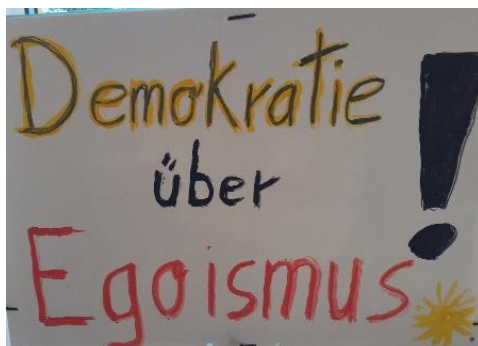 Demokratie
über
Egoismus!